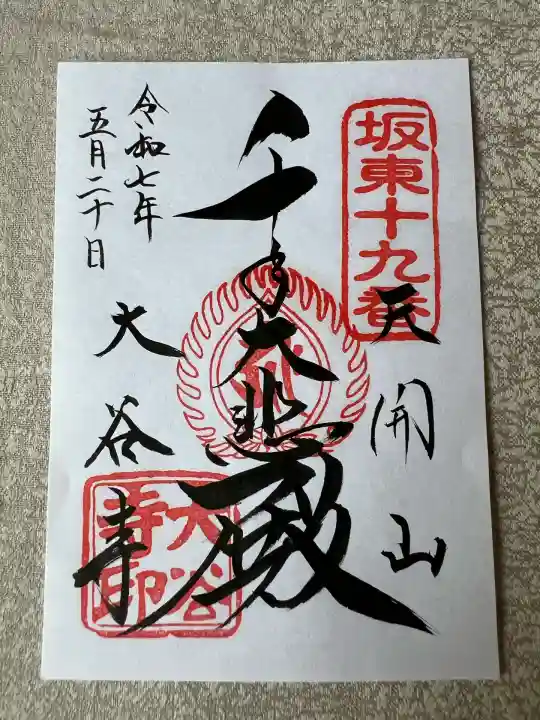 坂東十九番
天開山
千手大悲殿
令和七年
五月二十日
大谷寺
大谷寺印